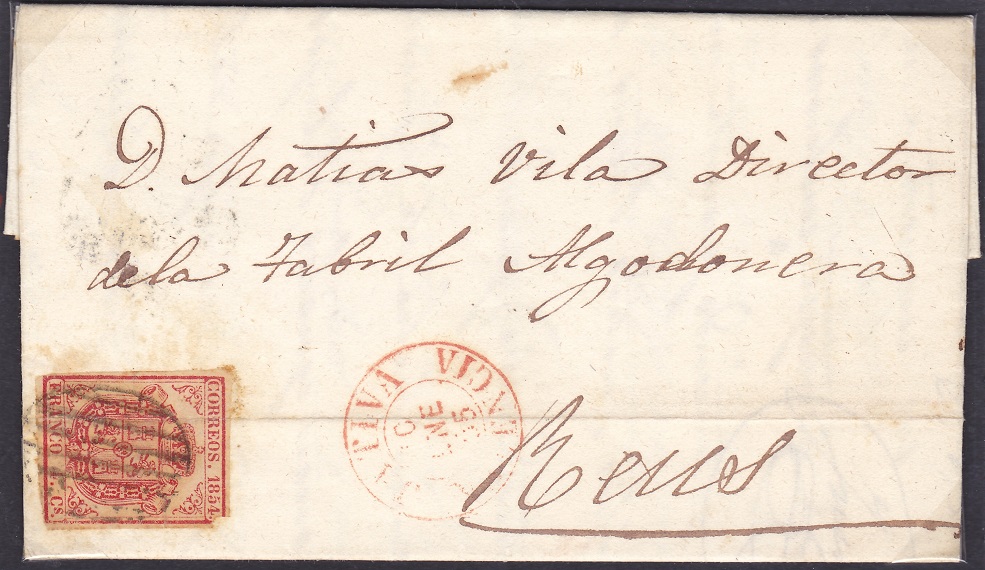 D. Matias Vila Director
dela Fabril Algodonera
Reus
CORREOS. 1854.
FRANCO Cs.